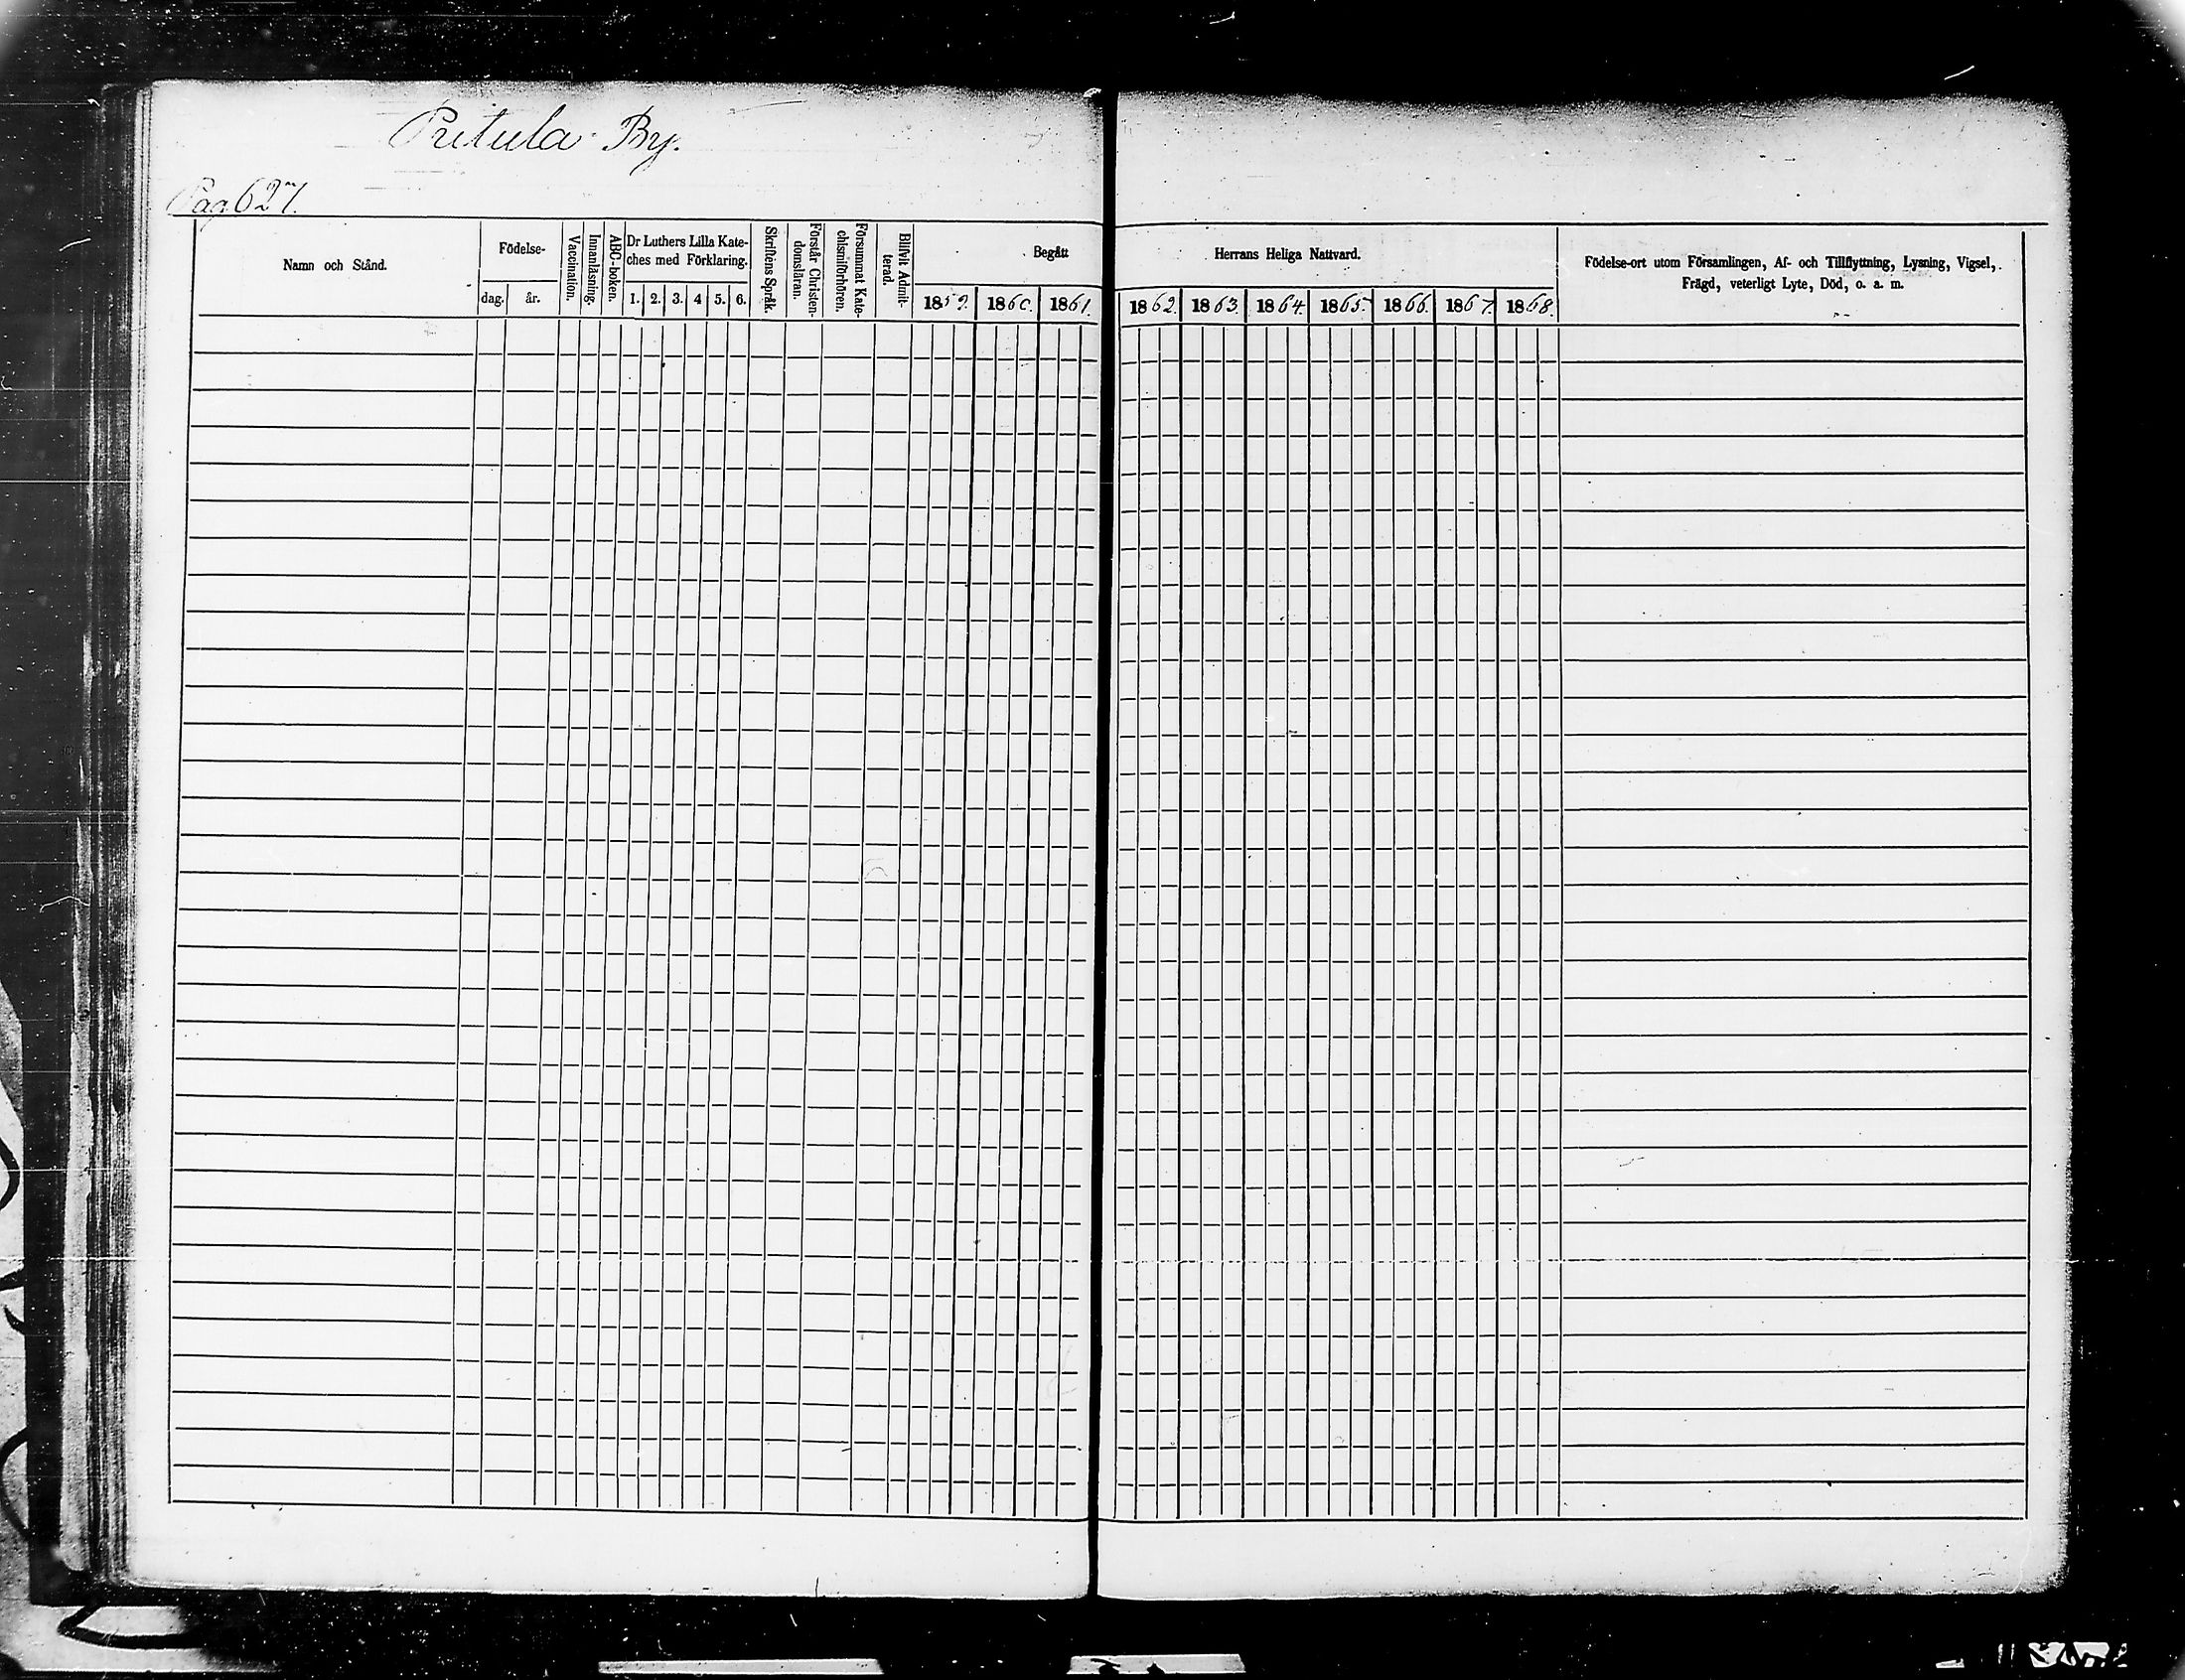 Pritula By.
Pag. 627.
Namn och Stånd.
Födelse-
dag.
år.
Vaccination.
Innanläsning.
ABC-boken.
Dr Luthers Lilla Kate-
ches med Förklaring.
1. 2. 3. 4 5. 6.
Skriftens Språk.
Förstår Christen-
domsläran.
Försummat Kate-
chismiförhören.
Blifvit Admit-
terad.
Begått
1859. 1860. 1861.
Herrans Heliga Nattvard.
1862. 1863. 1864. 1865. 1866. 1867. 1868.
Födelse-ort utom Församlingen, Af- och Tillflyttning, Lysning, Vigsel,
Frägd, veterligt Lyte, Död, o. a. m.